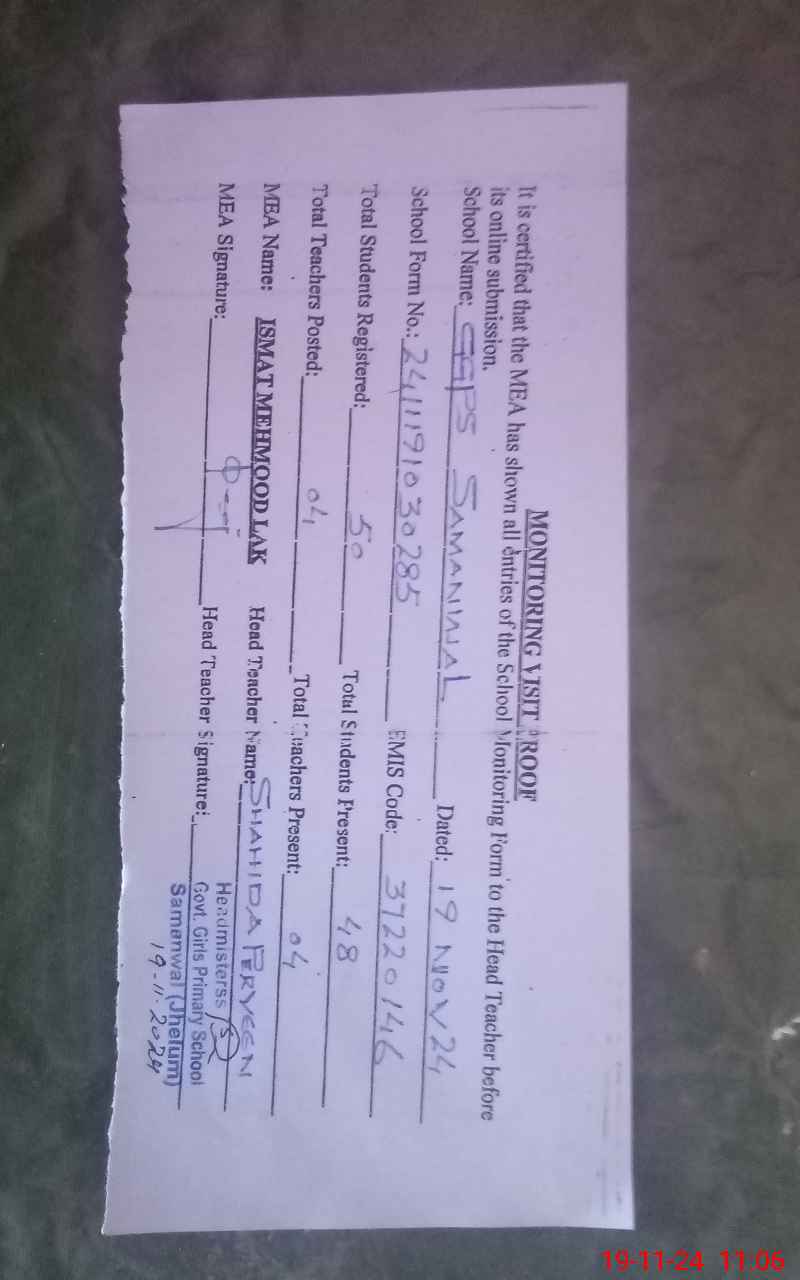 MONITORING VISIT PROOF
It is certified that the MEA has shown all entries of the School Monitoring Form to the Head Teacher before
its online submission.
School Name: GGPS SAMANWAL Dated: 19 NOV 24
School Form No.: 2411191030285 EMIS Code: 37220146
Total Students Registered: 50 Total Students Present: 48
Total Teachers Posted: 04 Total Teachers Present: 04
MEA Name: ISMAT MEHMOOD LAK Head Teacher Name: SHAHIDA PERVEEN
MEA Signature: Head Teacher Signature:
Headmisterss
Govt. Girls Primary School
Samanwal (Jhelum)
19-11-2024
19-11-24 11:06